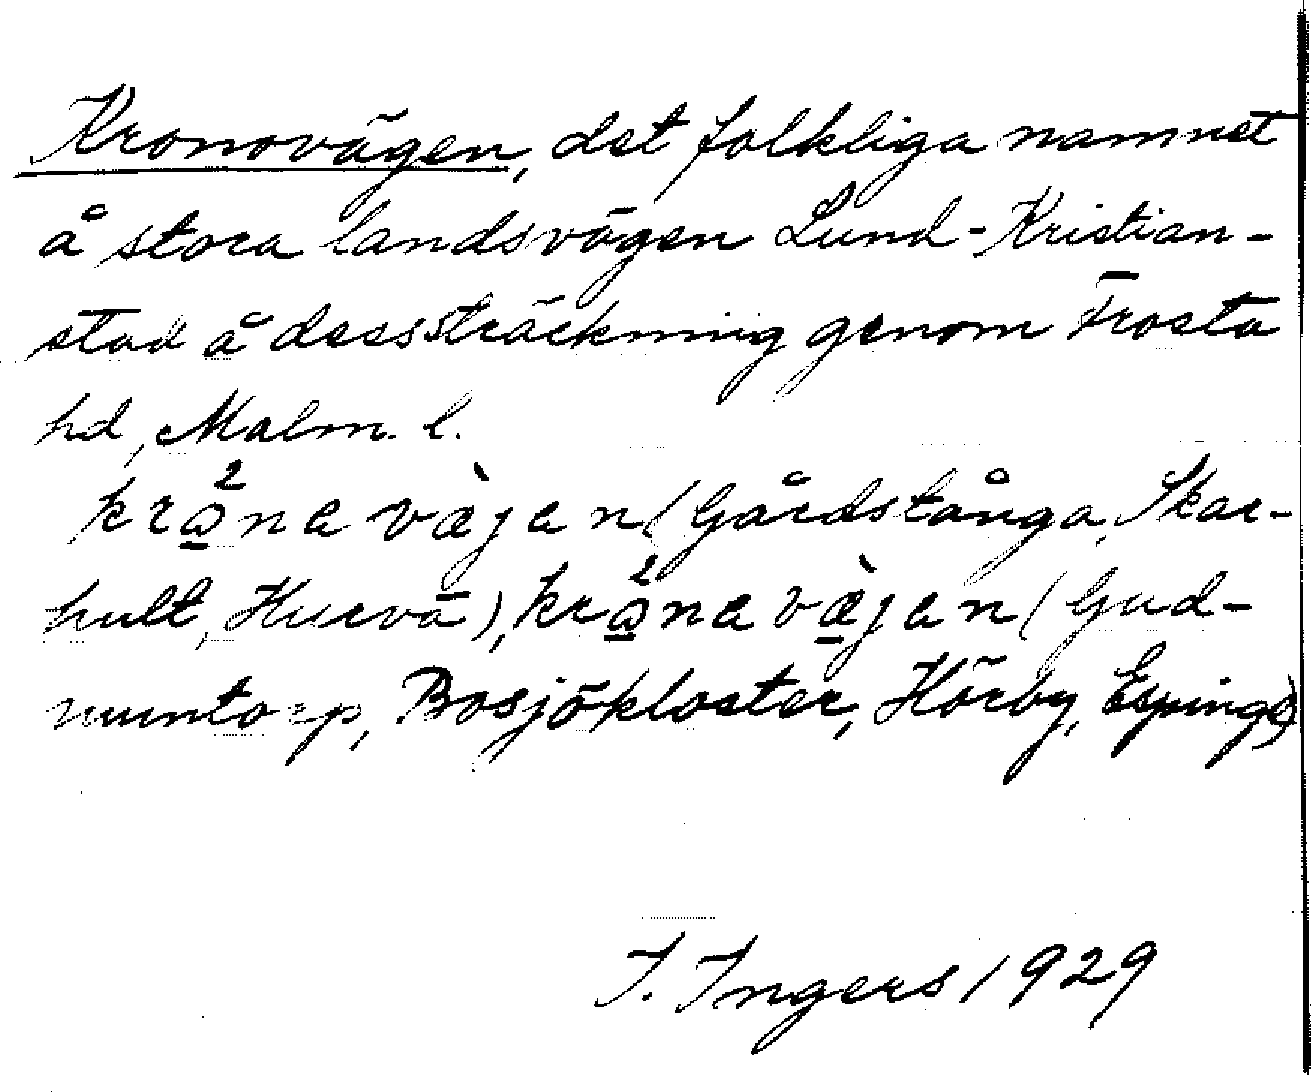 Kronovägen, det folkliga namnet
å stora landsvägen Lund-Kristian-
stad å dess sträckning genom Frosta
hd, Malm. l.
krånavæ̀jen (Gårdstånga, Skar-
hult, Hurva), krånavæ̀jan (Gud-
muntorp, Bosjökloster, Hörby, Espinge)
I. Ingers 1929